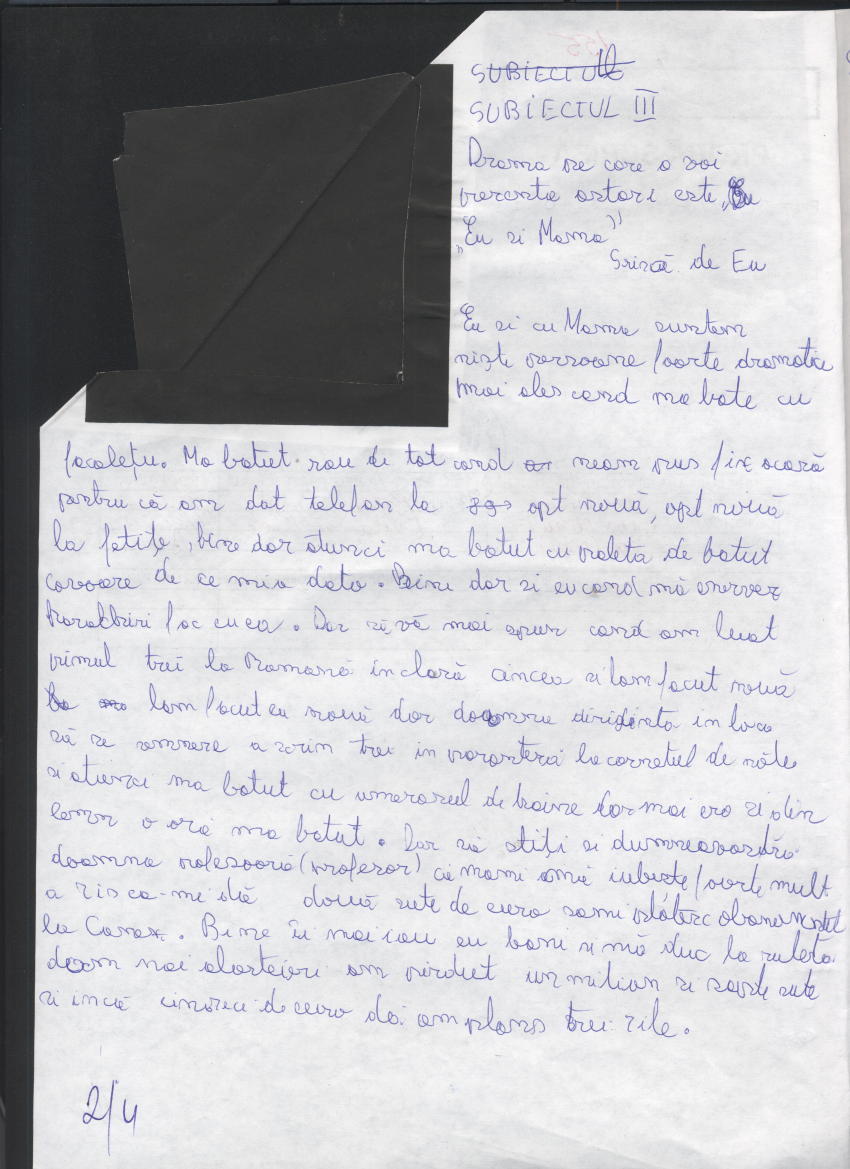 SUBIECTUL
SUBIECTUL III
Drama pe care o voi
prezenta astazi este „Eu
„Eu si Mama"
Srisă de Eu
Eu si cu Mama suntem
niște persoane foarte dramatice
mai ales cand ma bate cu
facalețu. Ma batut rau de tot cand neam pus fix acară
pentru că am dat telefon la opt nouă, opt nouă
la fetițe, bine dar atunci ma batut cu paleta de batut
covoare de ce mi a dato. Bine dar si eu cand mă enervez
harakiri fac cu ea. Dar să vă mai spun cand am luat
primul trei la Romană in clasă cincea si lam facut nouă
lam facut eu nouă dar doamna diriginta in loc
să se semneze a scrin trei in paranteză la carnetul de nóte
si atunci ma batut cu umerasul de haine dar mai era si din
lemn o oră ma batut. Dar să stiți si dumneavoastră
doamna profesoară (profesor) că mami mă iubește foarte mult
a zis ca-mi dă două sute de euro sami plătesc abonamentul
la Conex. Bine îi mai iau eu bani si mă duc la ruleta.
deam mai alastaieri am pirdut un milion si sapte sute
si incă cinzeci de euro da am plans trei zile.
2/4